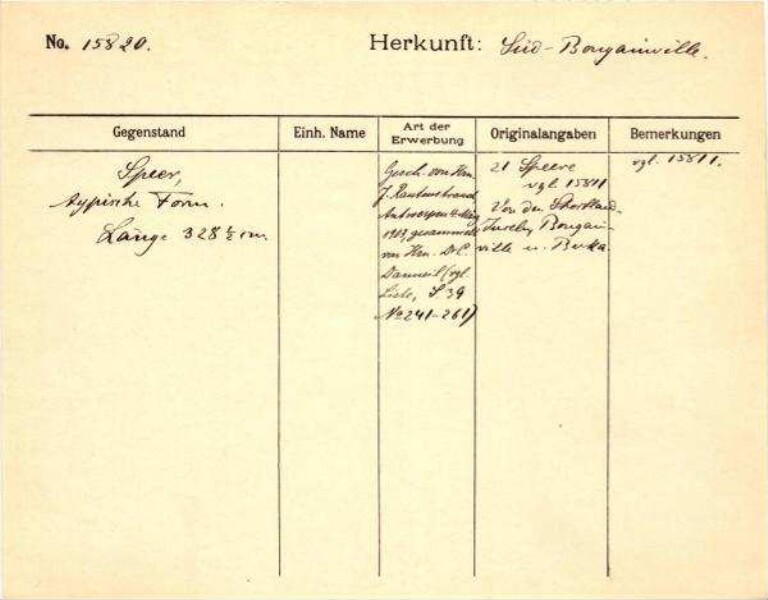 No. 15820.
Herkunft: Süd-Bougainville.
Gegenstand
Einh. Name
Art der Erwerbung
Originalangaben
Bemerkungen
Speer,
typische Form.
Länge 328 ½ cm.
Gesch. von Hrn.
J. Rautenstrauch
Antwerpen
1913, gesammelt
von Hrn. Dr C.
(vgl.
Liste, S. 39
No 241-261)
21 Speere
vgl. 15811
Von den Shortland-
Inseln, Bougain-
ville u. Buka.
vgl. 15811.